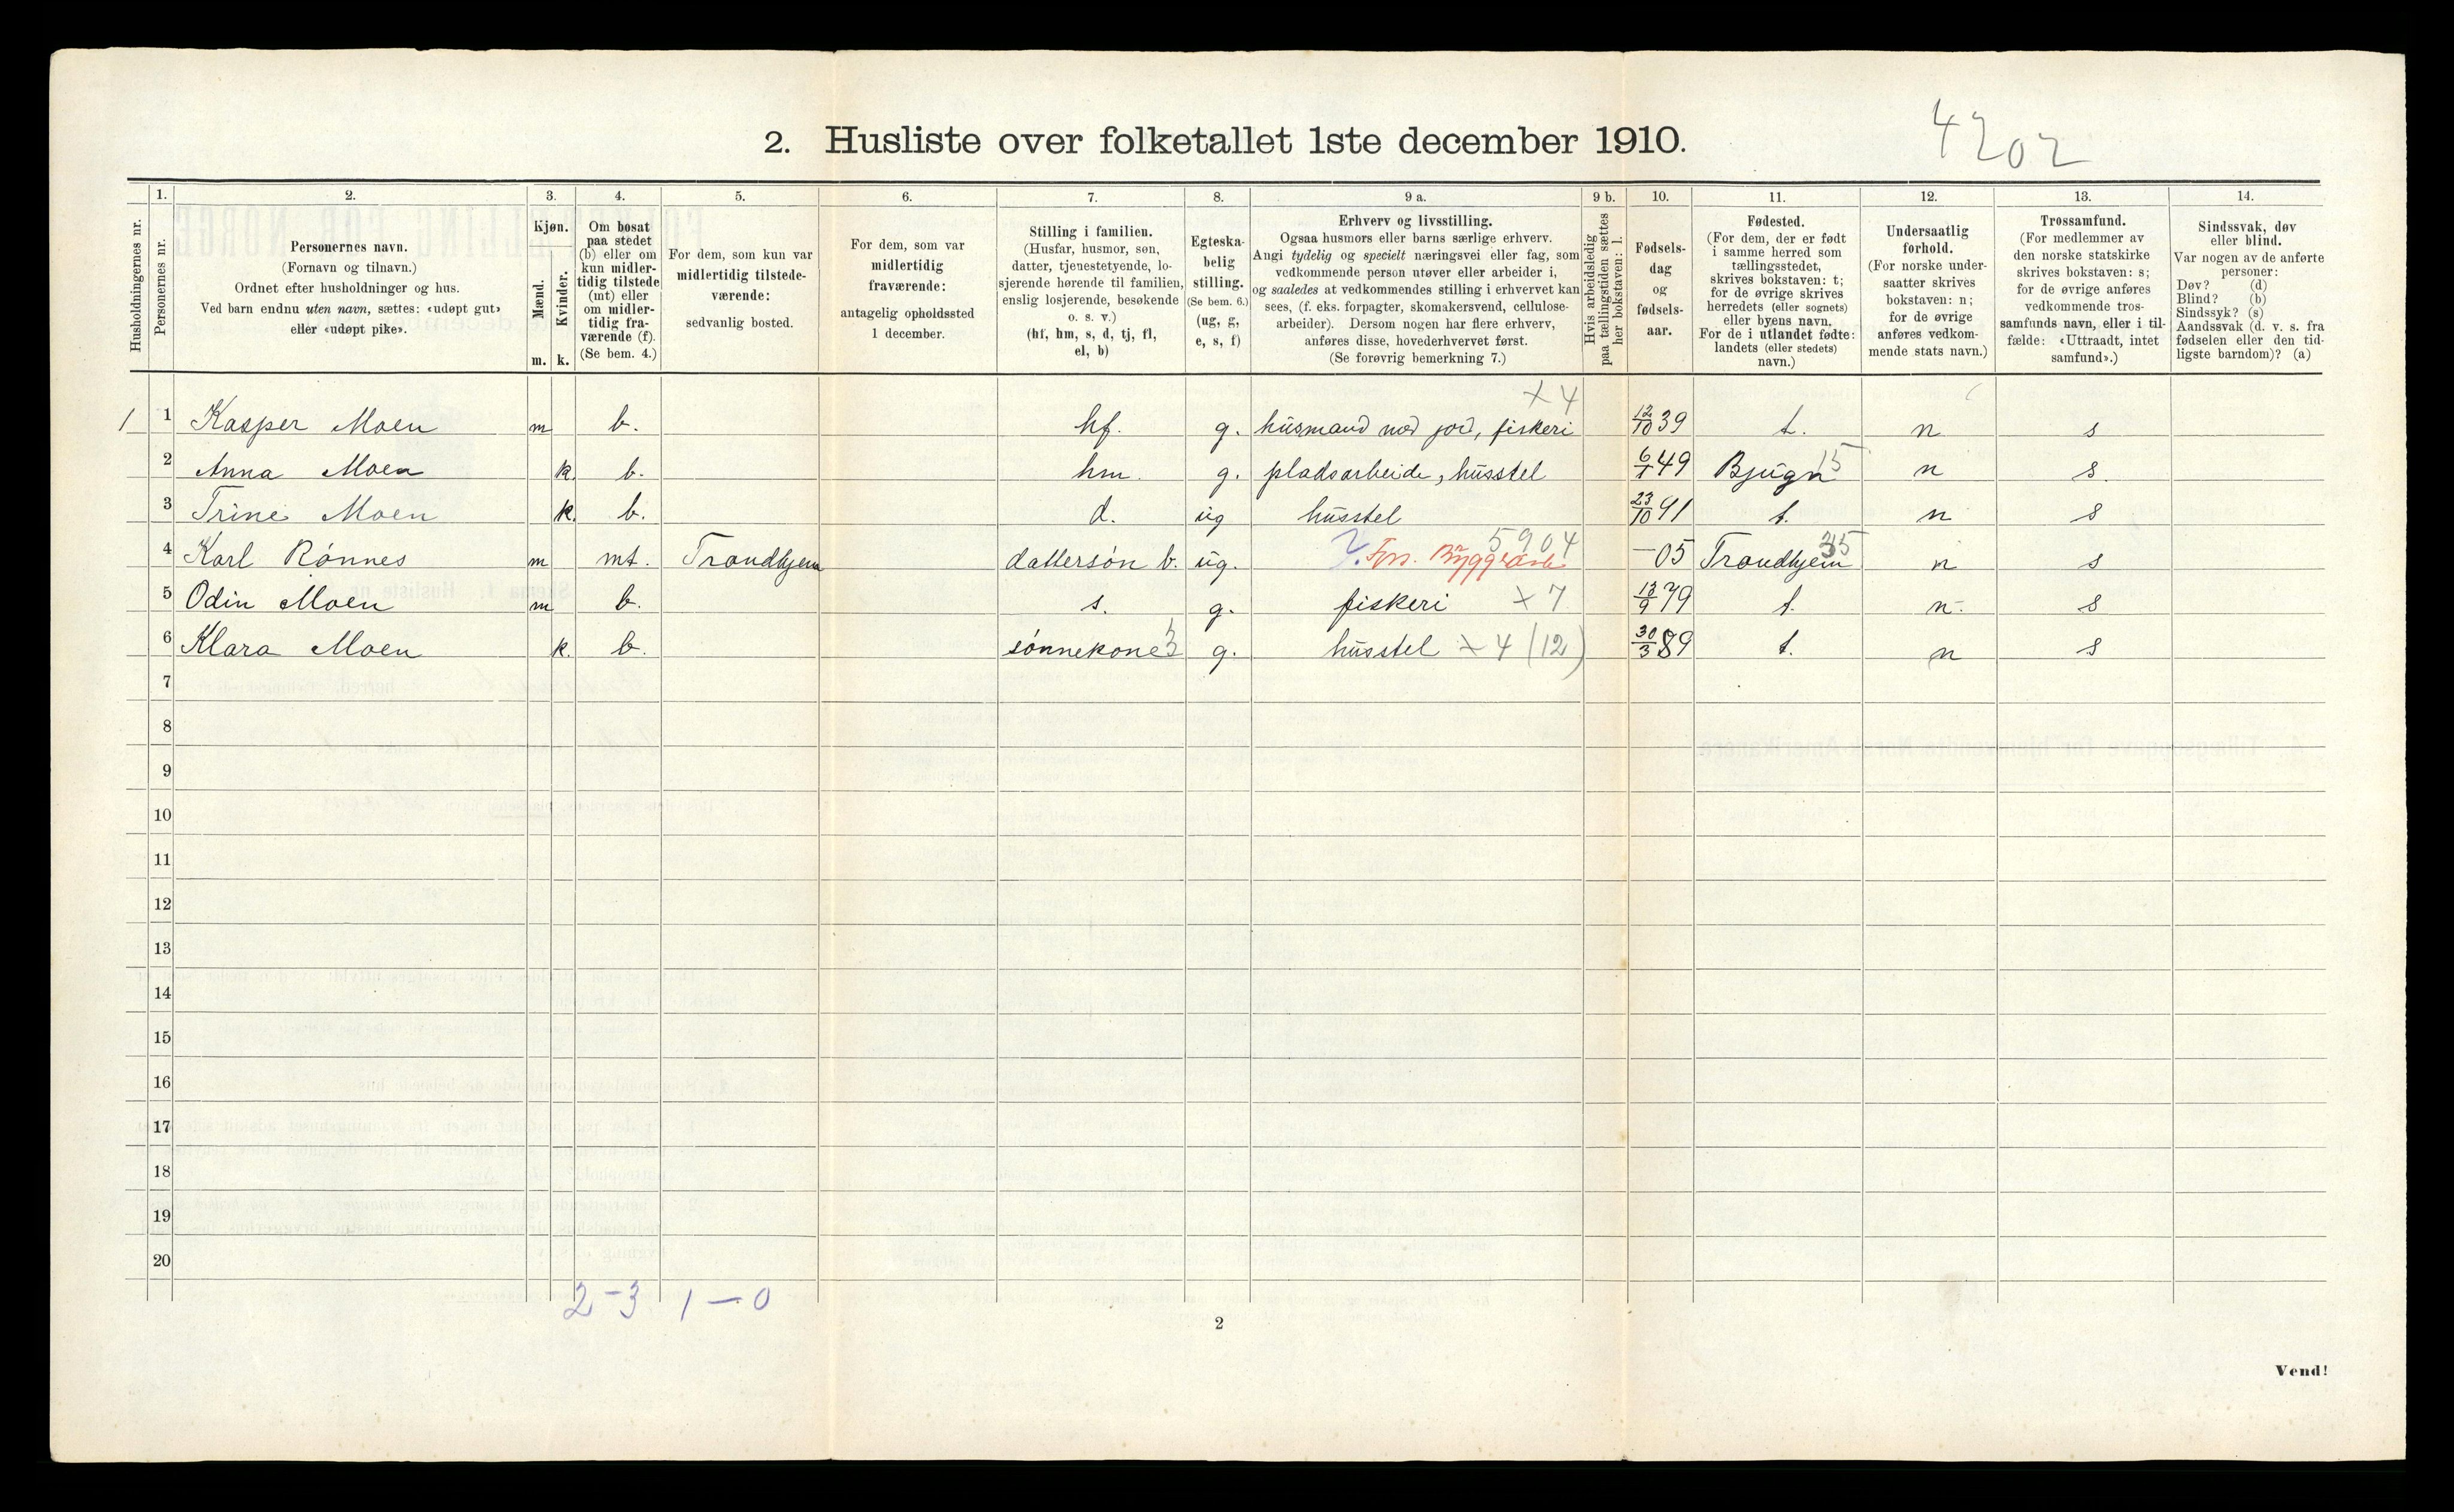 4202
2. Husliste over folketallet 1ste december 1910.
Husholdningernes nr.
1. Personernes nr.
2. Personernes navn.
(Fornavn og tilnavn.)
Ordnet efter husholdninger og hus.
Ved barn endnu uten navn, sættes: «udøpt gut»
eller «udøpt pike».
3. Kjøn.
Mænd. m.
Kvinder. k.
4. Om bosat
paa stedet
(b) eller om
kun midler-
tidig tilstede
(mt) eller
om midler-
tidig fra-
værende (f).
(Se bem. 4.)
5. For dem, som kun var
midlertidig tilstede-
værende:
sedvanlig bosted.
6. For dem, som var
midlertidig
fraværende:
antagelig opholdssted
1 december.
7. Stilling i familien.
(Husfar, husmor, søn,
datter, tjenestetyende, lo-
sjerende hørende til familien,
enslig losjerende, besøkende
o. s. v.)
(hf, hm, s, d, tj, fl,
el, b)
8. Egteska-
belig
stilling.
(Se bem. 6.)
(ug, g,
e, s, f)
9 a. Erhverv og livsstilling.
Ogsaa husmors eller barns særlige erhverv.
Angi tydelig og specielt næringsvei eller fag, som
vedkommende person utøver eller arbeider i,
og saaledes at vedkommendes stilling i erhvervet kan
sees, (f. eks. forpagter, skomakersvend, cellulose-
arbeider). Dersom nogen har flere erhverv,
anføres disse, hovederhvervet først.
(Se forøvrig bemerkning 7.)
9 b. Hvis arbeidsledig
paa tællingstiden sættes
her bokstaven: l.
10. Fødsels-
dag
og
fødsels-
aar.
11. Fødested.
(For dem, der er født
i samme herred som
tællingsstedet,
skrives bokstaven: t;
for de øvrige skrives
herredets (eller sognets)
eller byens navn.
For de i utlandet fødte:
landets (eller stedets)
navn.)
12. Undersaatlig
forhold.
(For norske under-
saatter skrives
bokstaven: n;
for de øvrige
anføres vedkom-
mende stats navn.)
13. Trossamfund.
(For medlemmer av
den norske statskirke
skrives bokstaven: s;
for de øvrige anføres
vedkommende tros-
samfunds navn, eller i til-
fælde: «Uttraadt, intet
samfund».)
14. Sindssvak, døv
eller blind.
Var nogen av de anførte
personer:
Døv? (d)
Blind? (b)
Sindssyk? (s)
Aandssvak (d. v. s. fra
fødselen eller den tid-
ligste barndom)? (a)
x 4
1 1 Kasper Moen m b. hf. g. husmand med jord, fiskeri 12/10 39 t. n s
2 Anna Moen k. b. hm. g. pladsarbeide, husstel 6/1 49 Bjugn 15 n s.
3 Trine Moen k. b. d. ug husstel 23/10 91 t. n s
5904
4 Karl Rønnes m mt. Trondhjem dattersøn b. ug. -05 Trondhjem 35 n s
5 Odin Moen m b. s. g. fiskeri x 7 13/9 79 t. n. s
6 Klara Moen k. b. sønnekone 3 g. husstel x 4 (12) 30/3 89 t. n s
7
8
9
10
11
12
13
14
15
16
17
18
19
20
2-3 1-0
2
Vend!